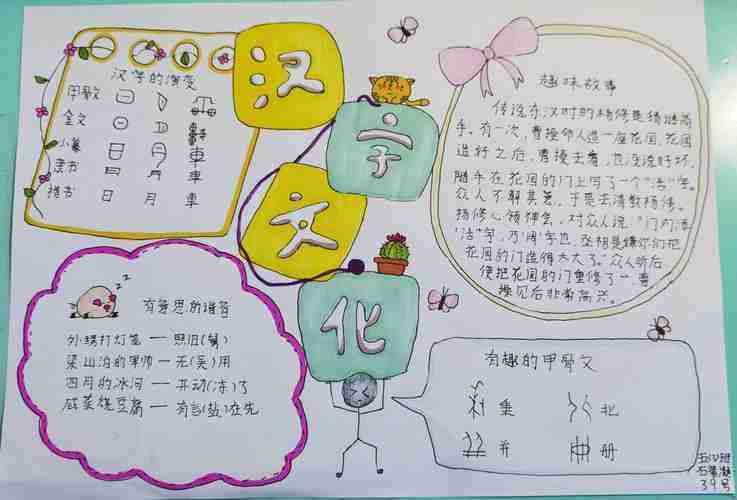 汉字文化
汉字的演变
甲骨文
金文
小篆
隶书
楷书
日 月 車
日 月 車
趣味故事
传说东汉时的杨修是猜谜高
手。有一次,曹操命人造一座花园。花园
造好之后,曹操去看,也没说好坏,
随手在花园的门上写了一个“活”字。
众人不解其意,于是去请教杨修。
杨修心领神会,对众人说:“门内活
‘活’字,乃‘阔’字也,丞相是嫌你们把
花园的门造得太大了。”众人听后
便把花园的门重修了一
操见后非常高兴。
有意思的谐音
外甥打灯笼——照旧(舅)
梁山泊的军师——无(吴)用
四月的冰河——开动(冻)了
咸菜拌豆腐——有言(盐)在先
有趣的甲骨文
集 北
并 册
班
39号